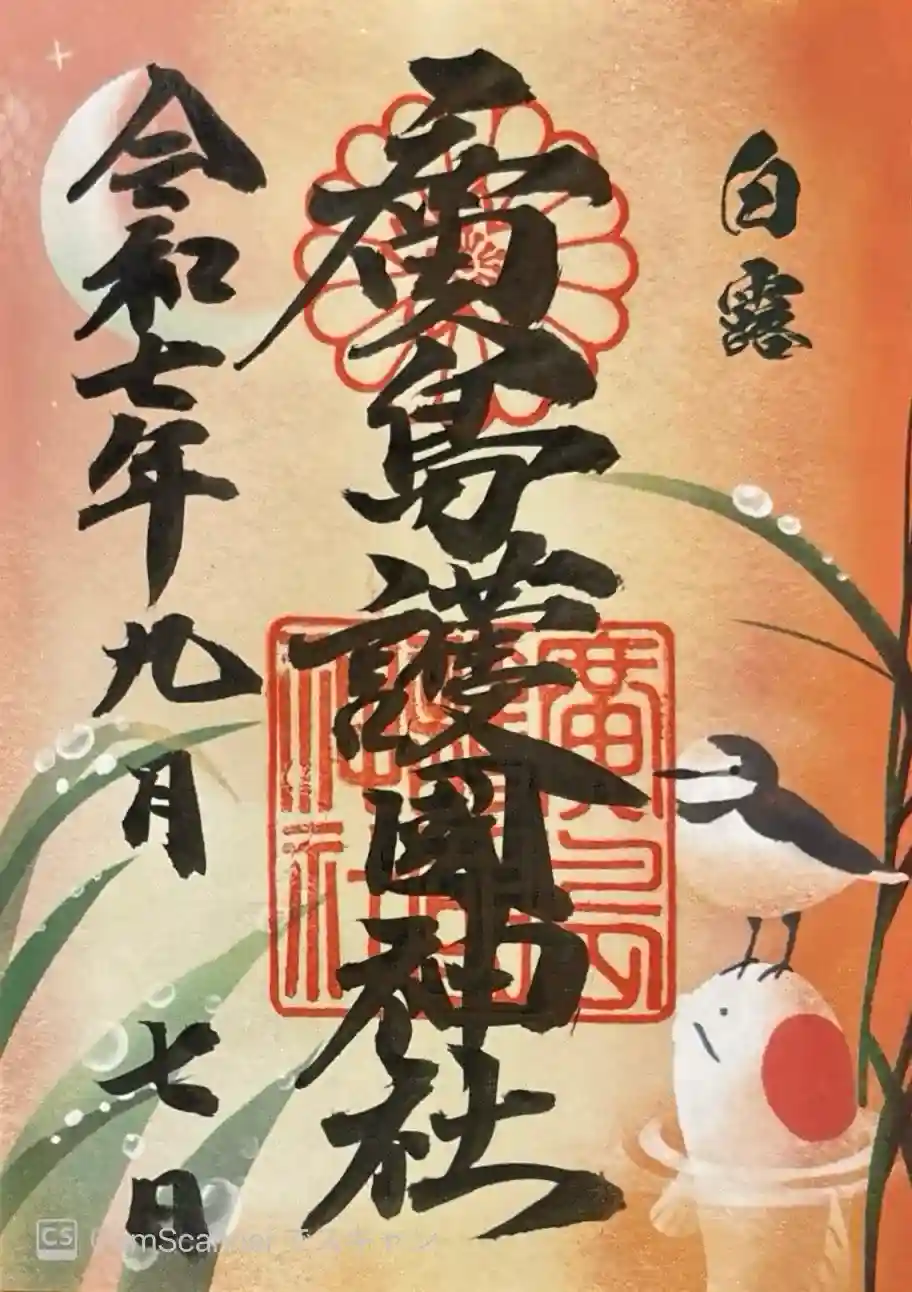 白露
廣島護國神社
令和七年九月七日
廣島護國神社
CS CamScanner でスキャン